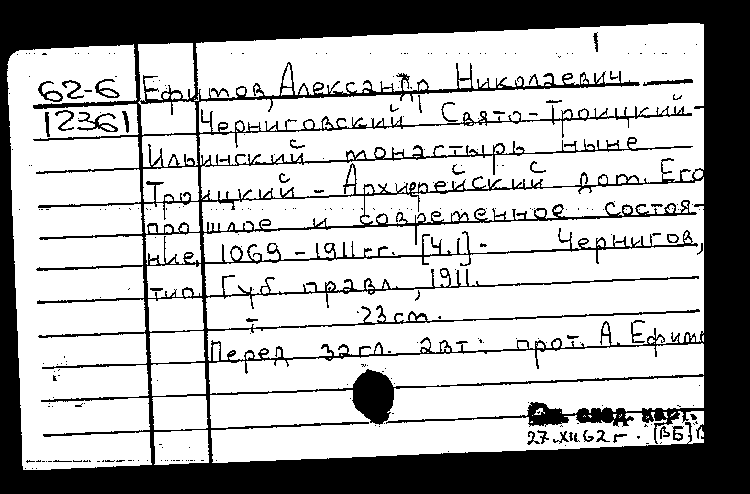 1
62-6 Ефимов, Александр Николаевич
12361 Черниговский Свято-Троицкий-
Ильинский монастырь ныне
Троицкий - Архиерейский дом. Его
прошлое и современное состоя-
ние. 1069-1911 гг. [Ч.1]- Чернигов,
тип. Губ. правл., 1911.
т. 23 cm.
Перед загл. авт: прот. А. Ефим
См. след. карт.
27.XII 62 г. [ВБ]В